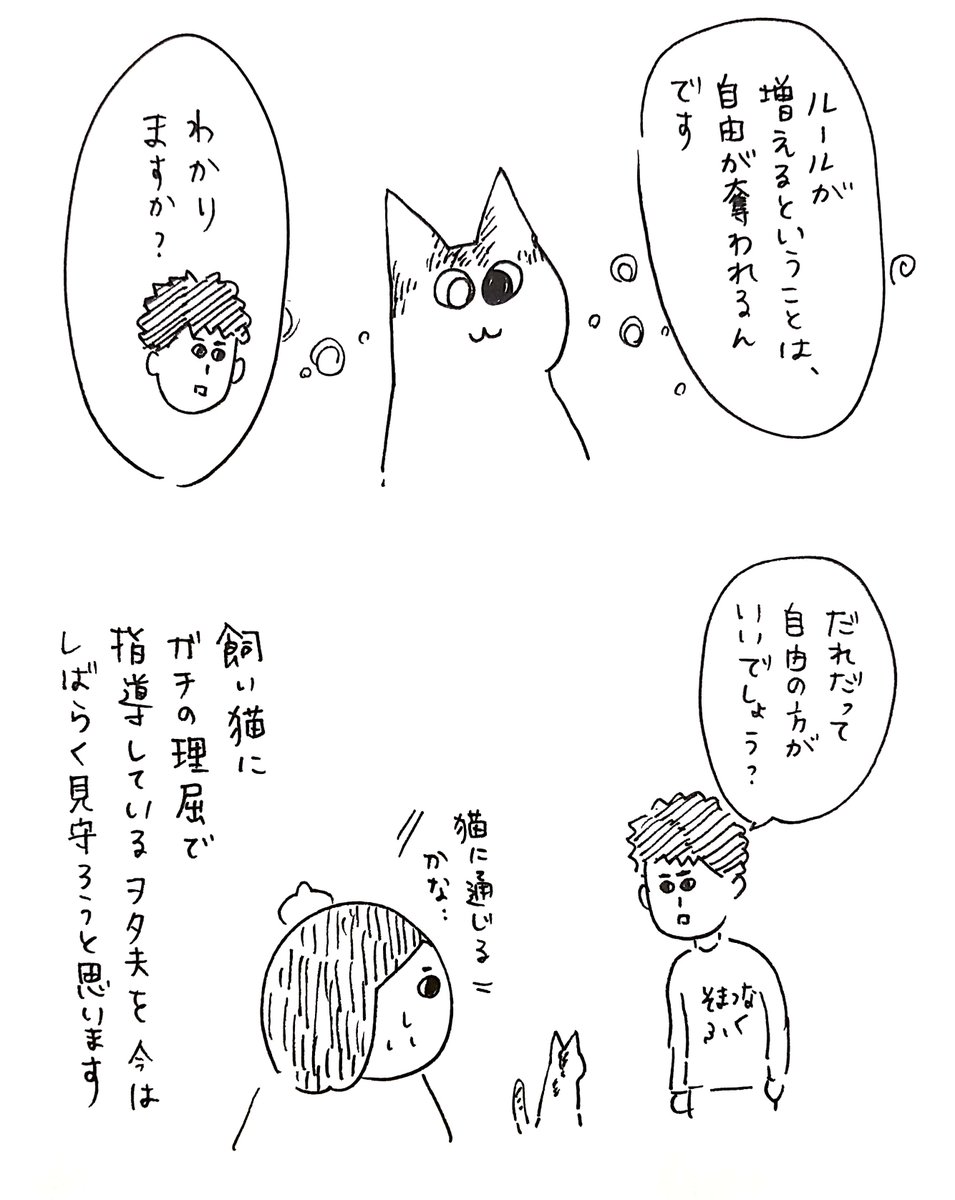 ルールが
増えるということは、
自由が奪われるん
です
わかり
ますか？
だれだって
自由の方が
いいでしょう？
そまつな
るいく
猫に通じる
かな‥
飼い猫に
ガチの理屈で
指導しているヲタ夫を今は
しばらく見守ろうと思います